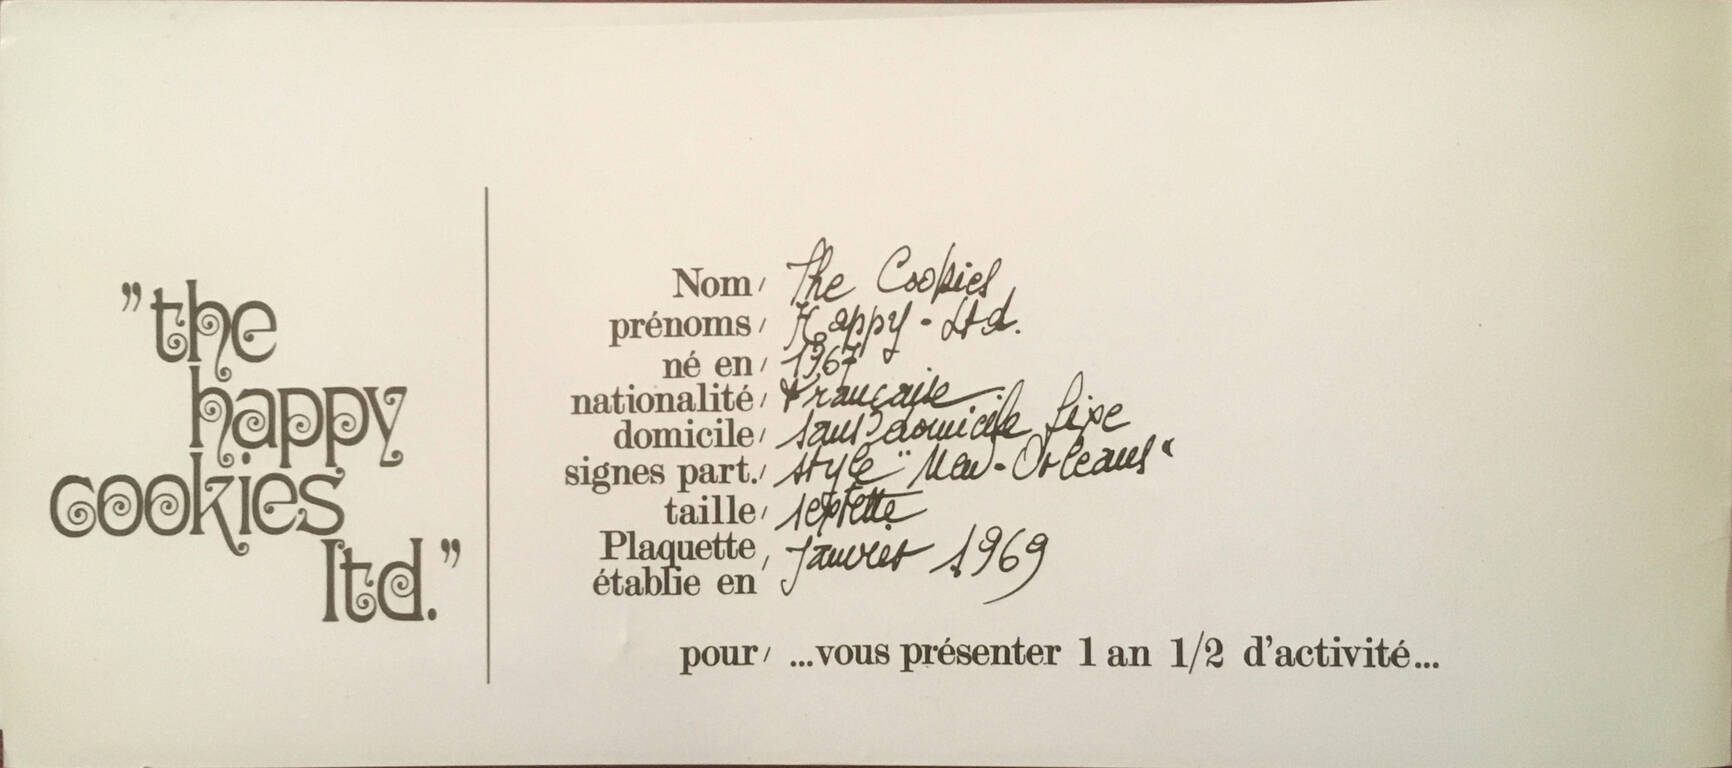 ”the
happy
cookies
ltd.”
Nom/ The Cookies
prénoms/ Happy - Ltd.
né en/ 1967
nationalité/ Française
domicile/ sans domicile fixe
signes part./ style "New-Orleans"
taille/ septette
Plaquette
établie en/ Janvier 1969
pour/ ...vous présenter 1 an 1/2 d'activité...